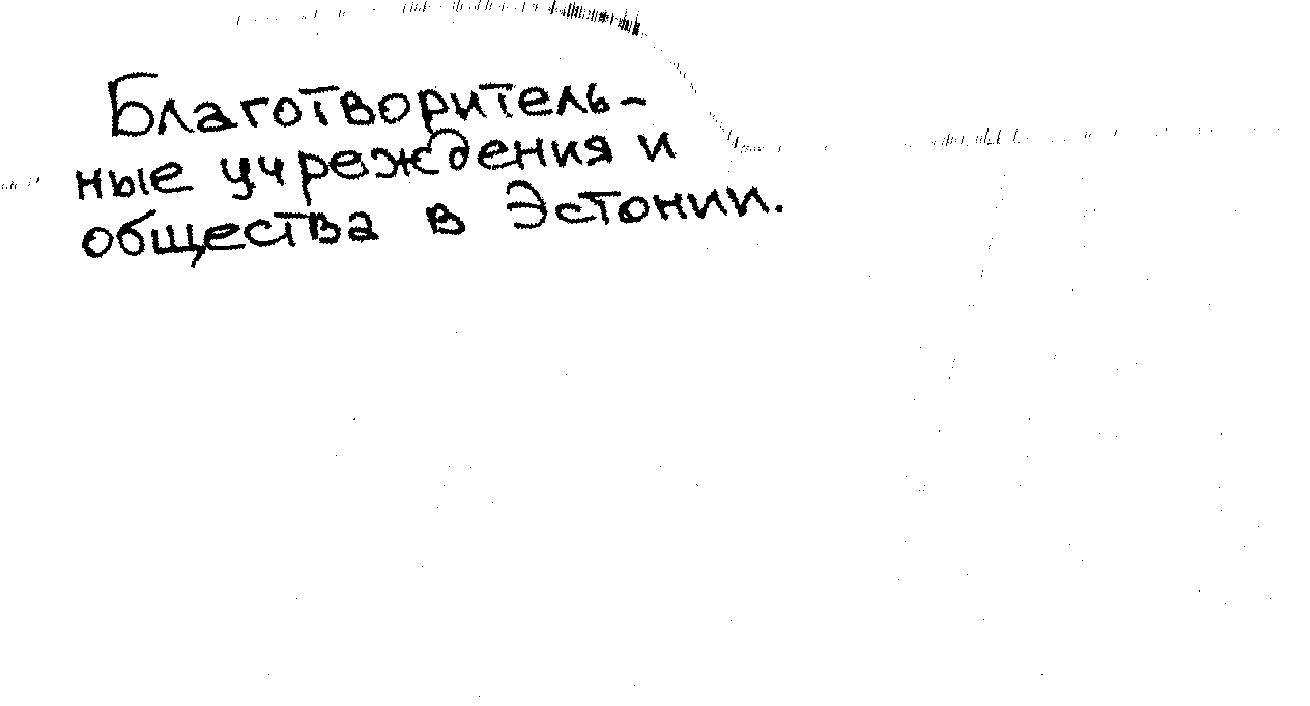 Благотворитель-
ные учреждения и
общества в Эстонии.